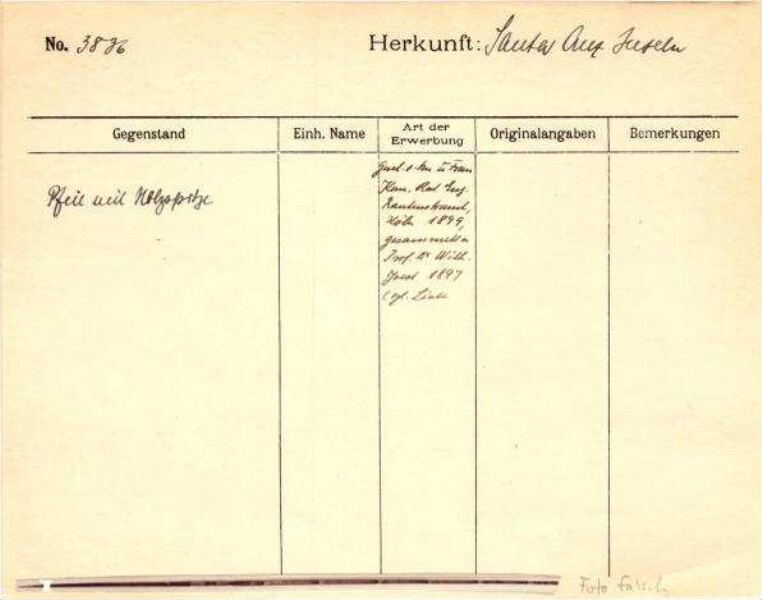 No. 3836 Herkunft: Santa Cruz Inseln
Gegenstand Einh. Name Art der Erwerbung Originalangaben Bemerkungen
Pfeil mit Holzspitze
Gesch. v. Hrn u Frau
Kom. Rat Eug.
Rautenstrauch,
Köln 1899,
gesammelt v.
Prof. Dr Wilh.
Joest 1897
Vgl. Liste
Foto falsch